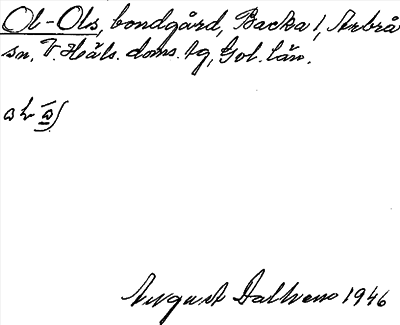 Ol-Ols, bondgård, Backa 1, Arbrå
sn, V. Häls. doms. tg, Gvl. län.
August Dalhem 1946